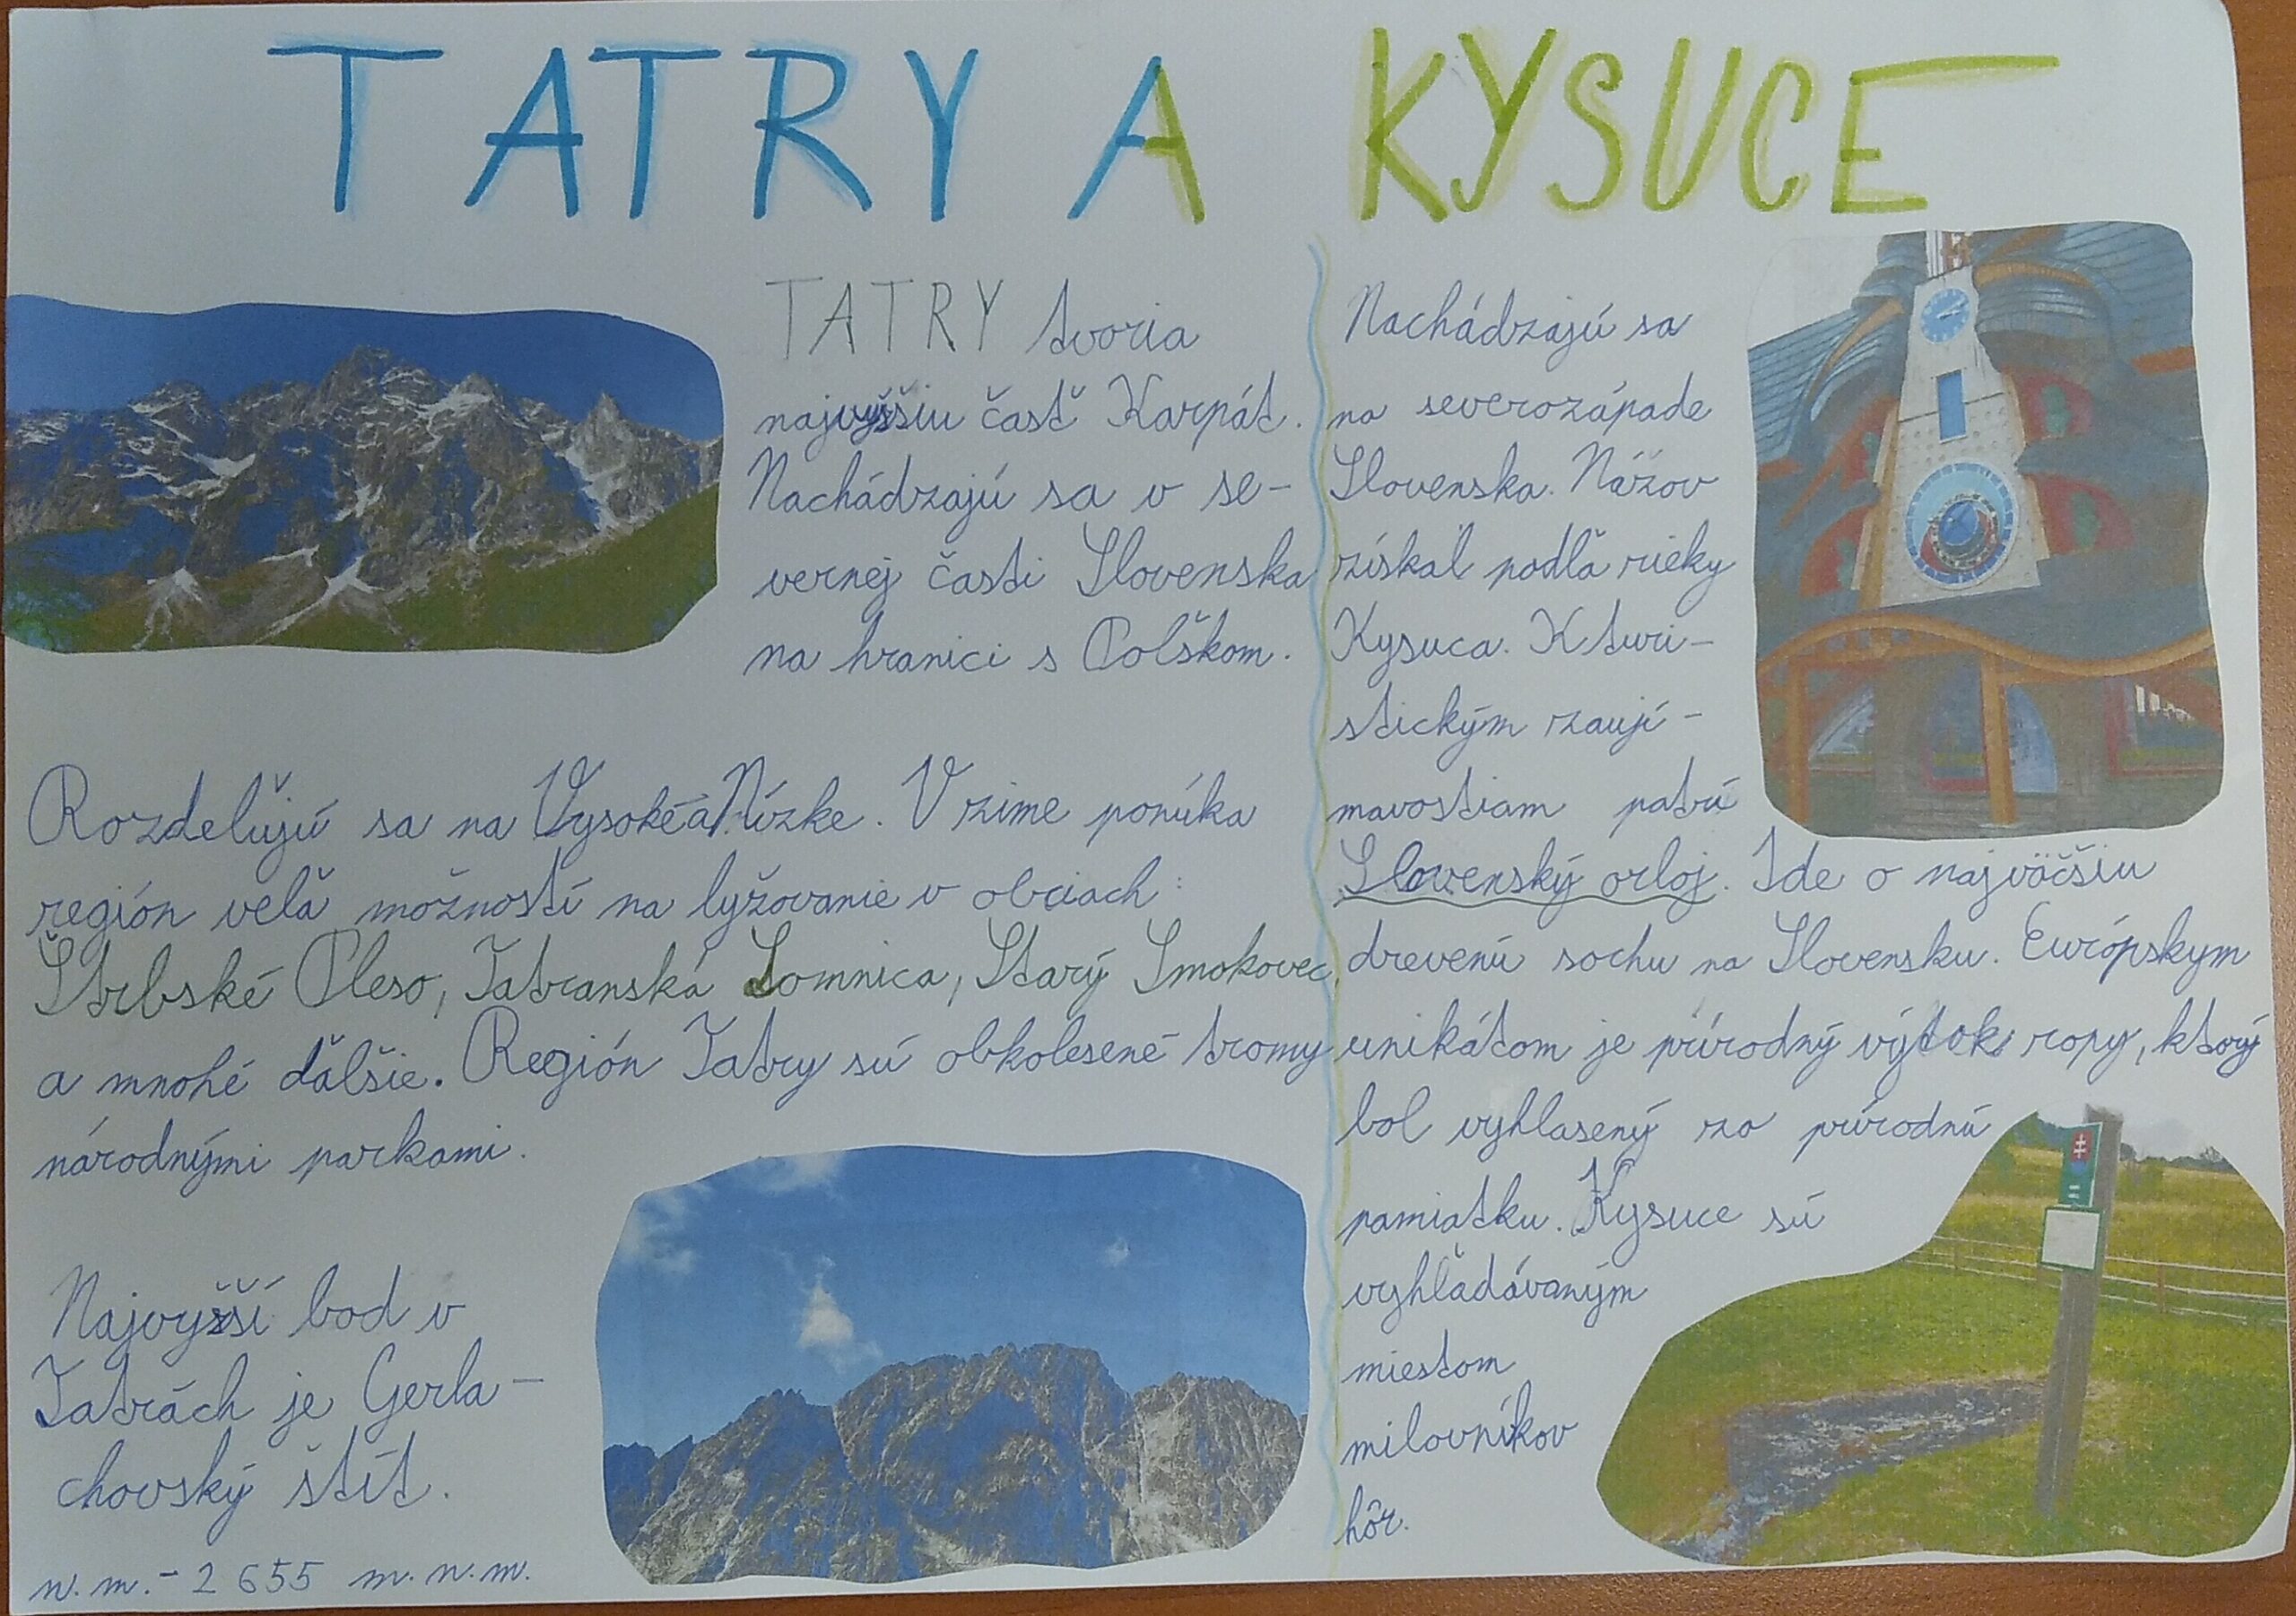 TATRY A KYSUCE
TATRY tvoria
najvyššiu časť Karpát.
Nachádzajú sa v se-
vernej časti Slovenska
na hranici s Poľskom.
Rozdeľujú sa na Vysoké a Nízke. V zime ponúka
región veľa možností na lyžovanie v obciach:
Štrbské Pleso, Tatranská Lomnica, Starý Smokovec,
a mnohé ďalšie. Región Tatry sú obkolesené tromy
národnými parkami.
Najvyšší bod v
Tatrách je Gerla-
chovský štít.
n.m.- 2 655 m.n.m.
Nachádzajú sa
na severozápade
Slovenska. Názov
získal podľa rieky
Kysuca. K turi-
stickým zaují-
mavostiam patrí
Slovenský orloj. Ide o najväčšiu
drevenú sochu na Slovensku. Európskym
unikátom je prírodný výtok ropy, ktorý
bol vyhlasený za prírodnú
pamiatku. Kysuce sú
vyhľadávaným
miestom
milovníkov
hôr.